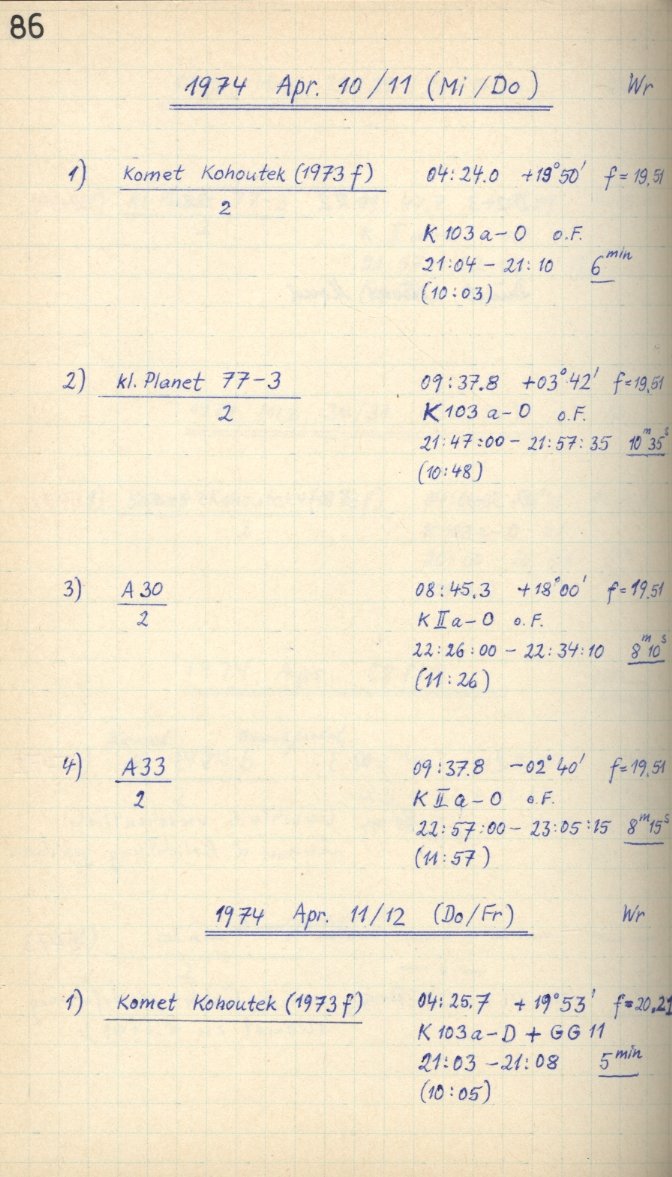 86
1974 Apr. 10/11 (Mi/Do) Wr
1) Komet Kohoutek (1973 f) 04:24.0 +19°50' f=19,51
2
K 103 a-O o.F.
21:04 - 21:10 6 min
(10:03)
2) kl. Planet 77-3 09:37.8 +03°42' f=19,51
2 K 103 a-O o.F.
21:47:00 - 21:57:35 10m 35s
(10:48)
3) A 30 08:45.3 +18°00' f=19,51
2 K II a-O o.F.
22:26:00 - 22:34:10 8m 10s
(11:26)
4) A 33 09:37.8 -02°40' f=19,51
2 K II a-O o.F.
22:57:00 - 23:05:15 8m 15s
(11:57)
1974 Apr. 11/12 (Do/Fr) Wr
1) Komet Kohoutek (1973 f) 04:25.7 +19°53' f=20,21
K 103 a-D + GG 11
21:03 - 21:08 5 min
(10:05)